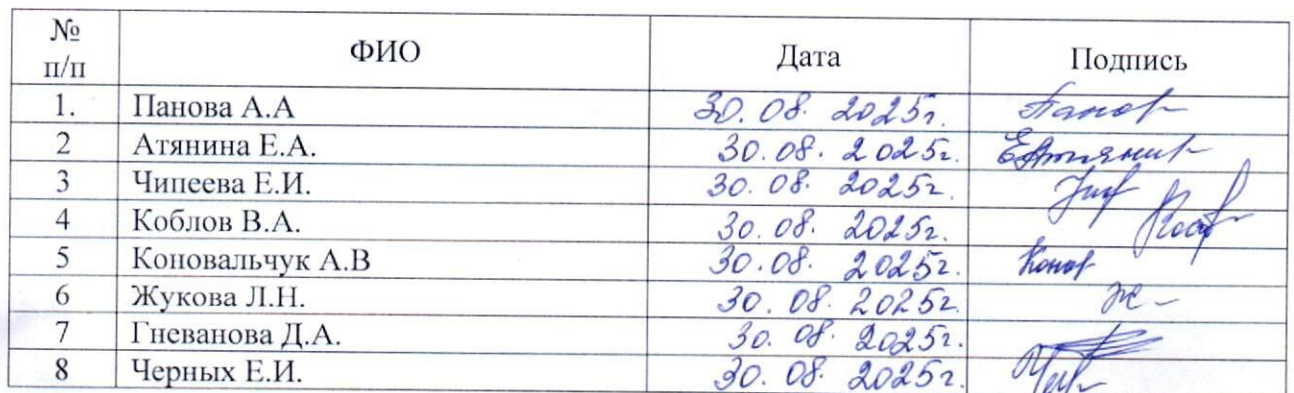 № п/п ФИО Дата Подпись
1. Панова А.А 30.08.2025г. Панов
2 Атянина Е.А. 30.08.2025г. ЕАтянин
3 Чипеева Е.И. 30.08.2025г.
4 Коблов В.А. 30.08.2025г.
5 Коновальчук А.В 30.08.2025г. Конов
6 Жукова Л.Н. 30.08.2025г. Ж
7 Гневанова Д.А. 30.08.2025г.
8 Черных Е.И. 30.08.2025г.